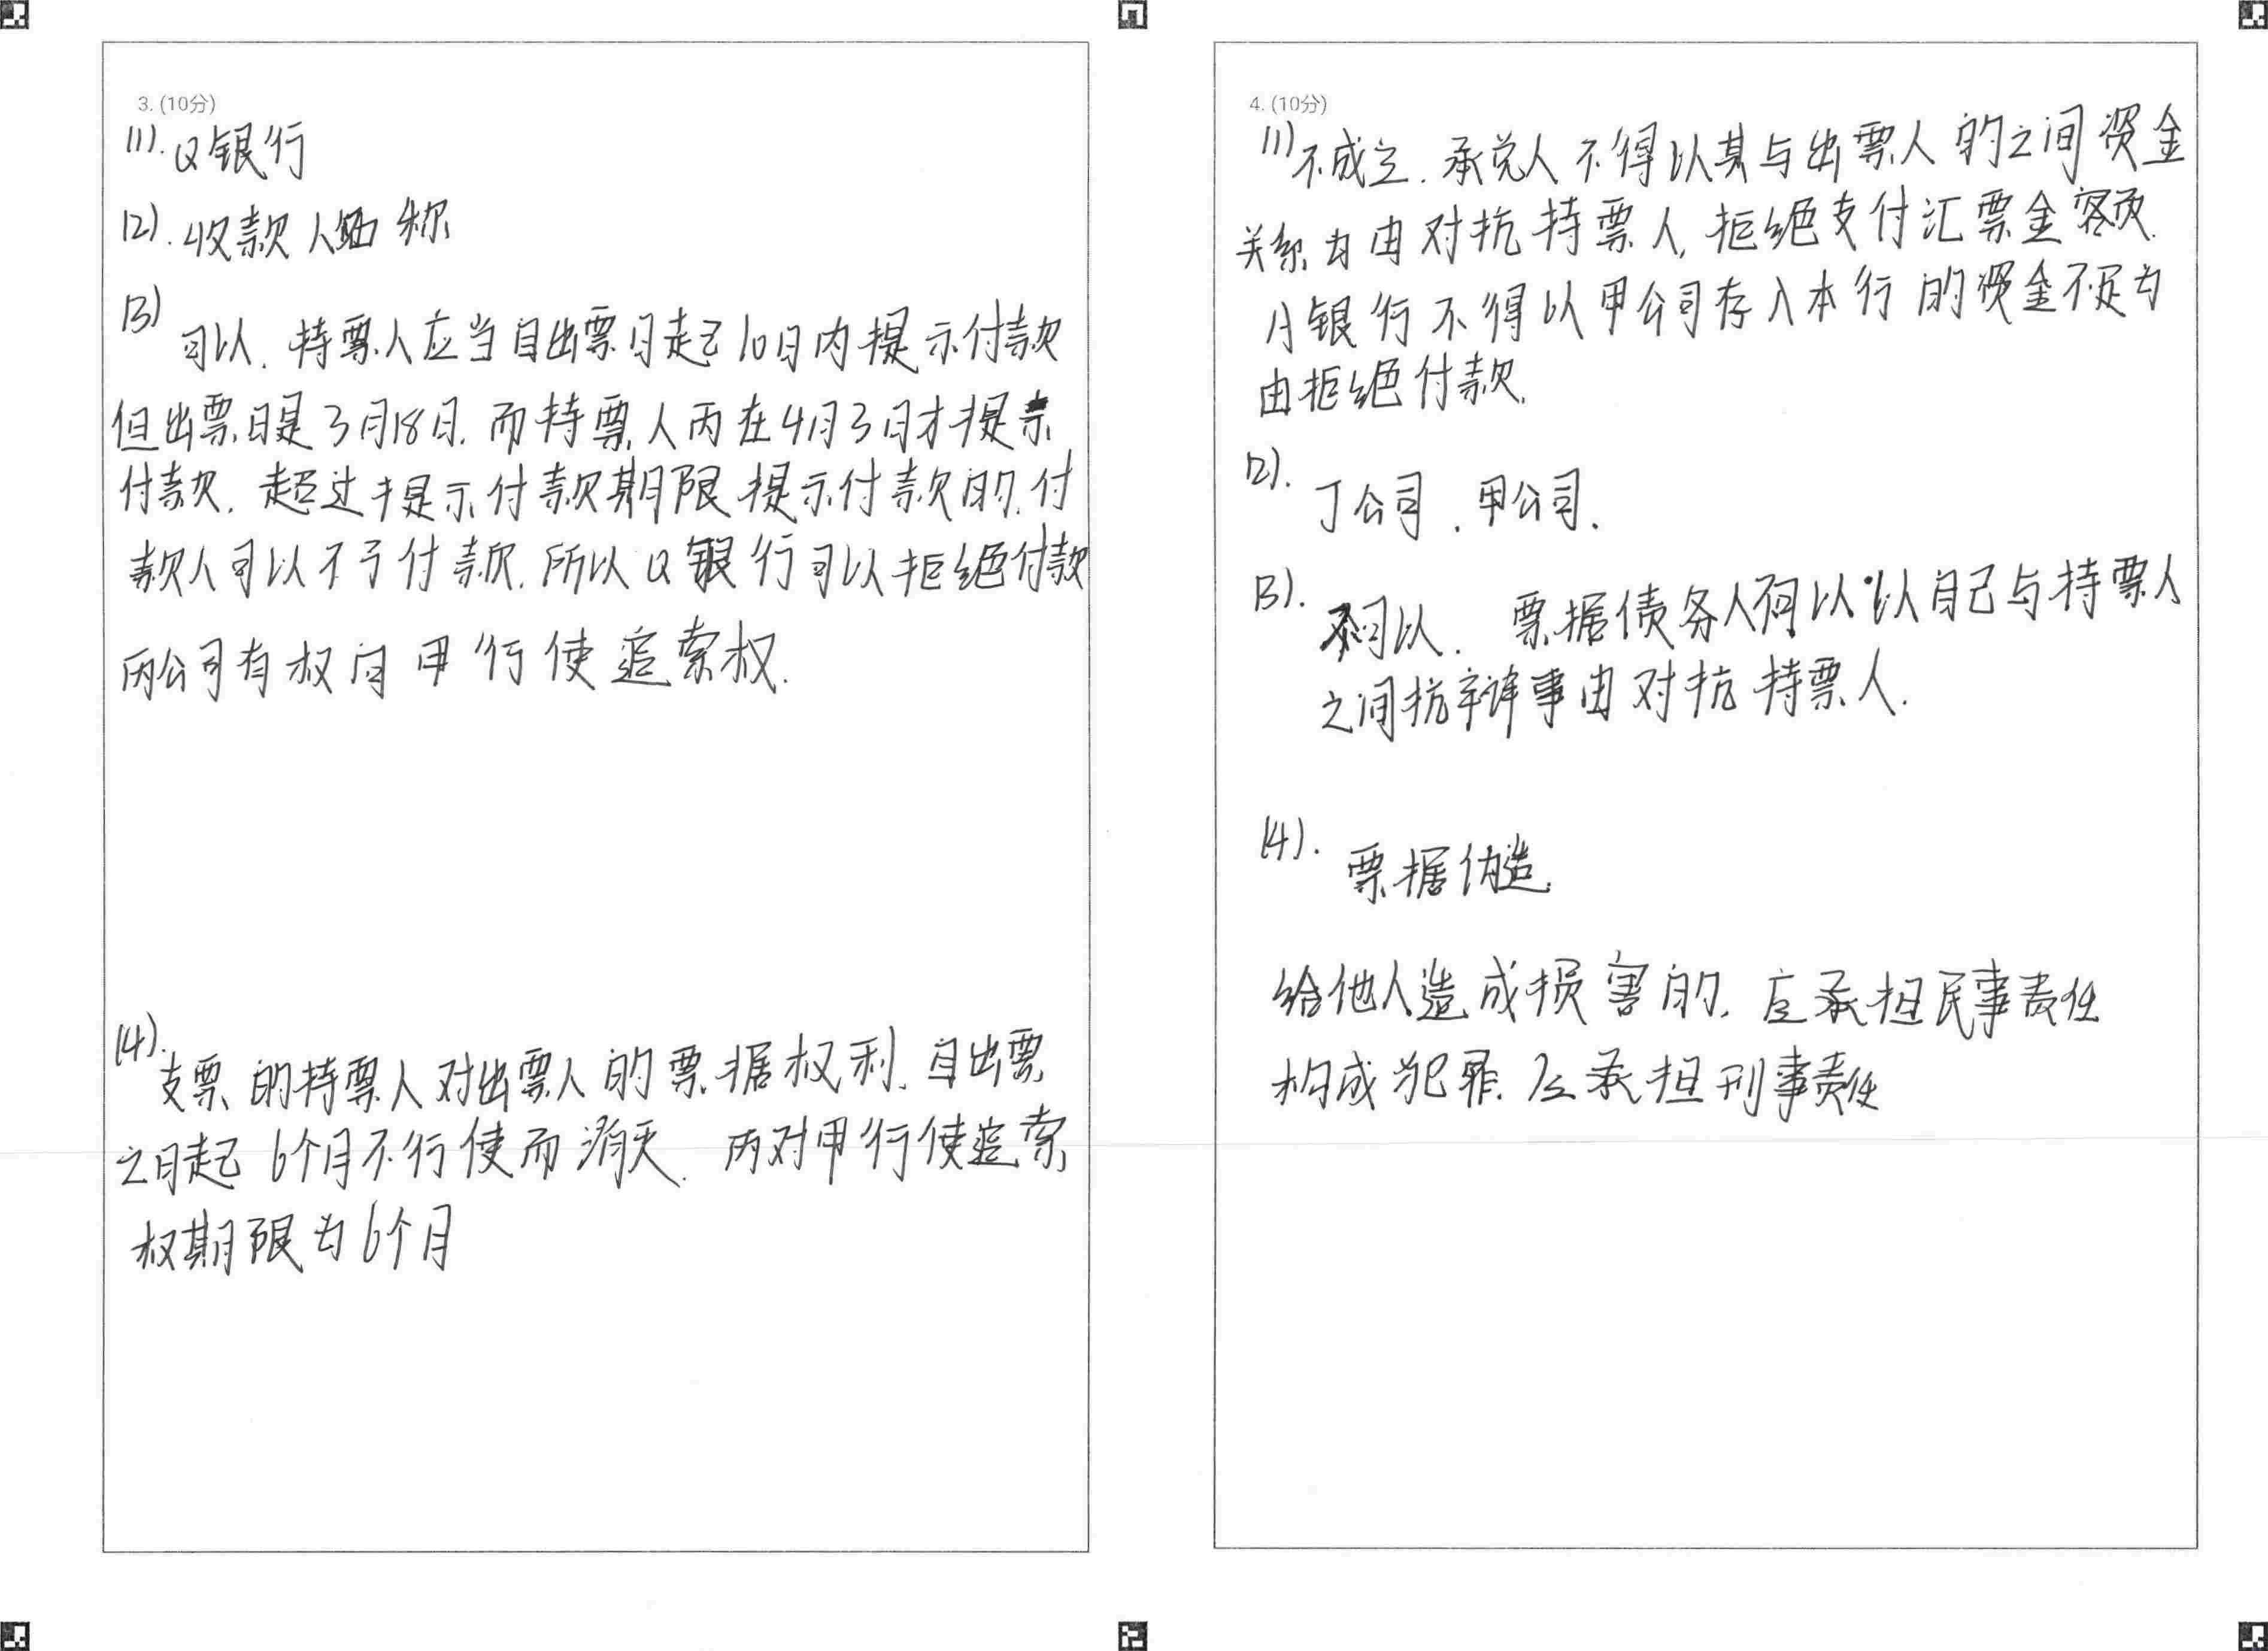 3. (10分)
(1). Q银行
(2). 收款人名称
(3)
可以. 持票人应当自出票日起10日内提示付款
但出票日是3月18日. 而持票人丙在4月3日才提示
付款. 超过提示付款期限提示付款的. 付
款人可以不予付款. 所以Q银行可以拒绝付款
丙公司有权向甲行使追索权.
(4).
支票的持票人对出票人的票据权利. 自出票
之日起6个月不行使而消灭. 丙对甲行使追索
权期限为6个月
4. (10分)
(1) 不成立. 承兑人不得以其与出票人的之间资金
关系为由对抗持票人, 拒绝支付汇票金额.
A银行不得以甲公司存入本行的资金不足为
由拒绝付款.
(2). 丁公司. 甲公司.
(3). 不可以. 票据债务人可以以自己与持票人
之间抗辩事由对抗持票人.
(4). 票据伪造.
给他人造成损害的. 应承担民事责任
构成犯罪. 应承担刑事责任